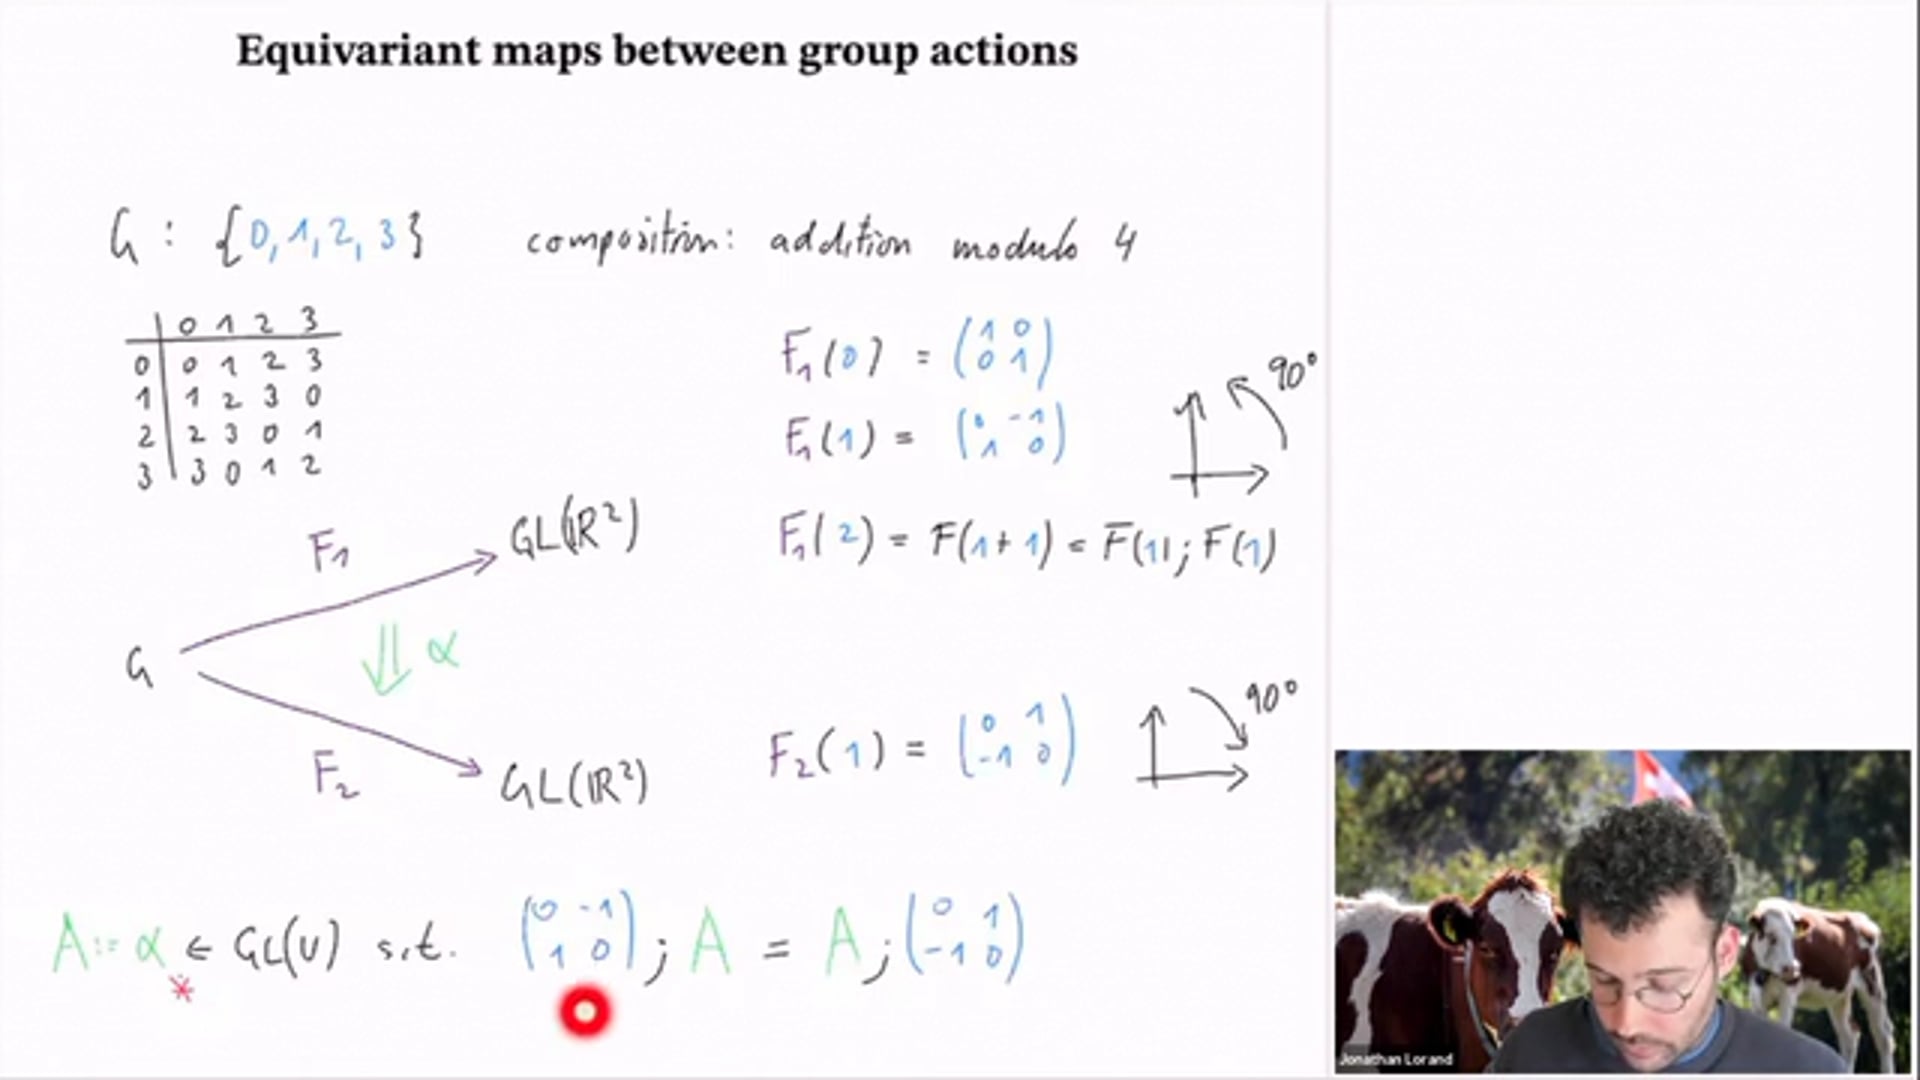 Equivariant maps between group actions
G : {0, 1, 2, 3} composition: addition modulo 4
0 1 2 3
0 0 1 2 3
1 1 2 3 0
2 2 3 0 1
3 3 0 1 2
F₁(0) = (1 0
0 1)
90°
F₁(1) = (0 -1
1 0)
F₁(2) = F(1+1) = F(1); F(1)
F₁
GL(ℝ²)
G
α
F₂
GL(ℝ²)
F₂(1) = (0 1
-1 0)
90°
A := α* ∈ GL(V) s.t. (0 -1
1 0) ; A = A ; (0 1
-1 0)
Jonathan Lorand